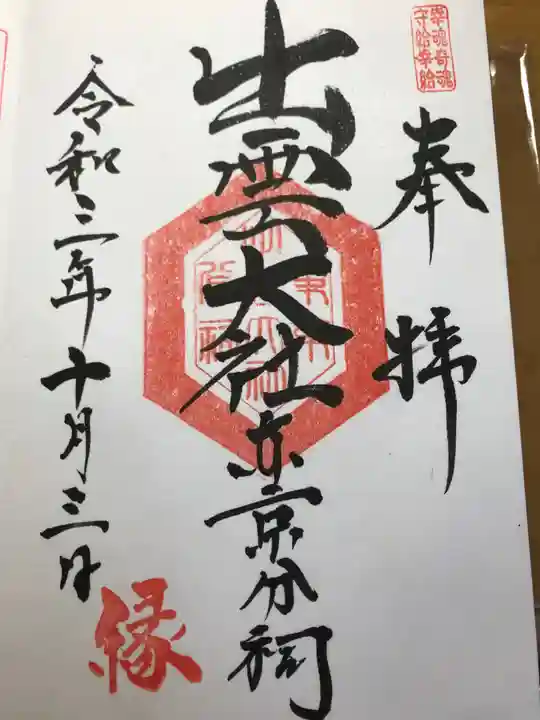 幸魂奇魂
守給幸給
奉拝
出雲大社東京分祠
令和三年十月三日
縁